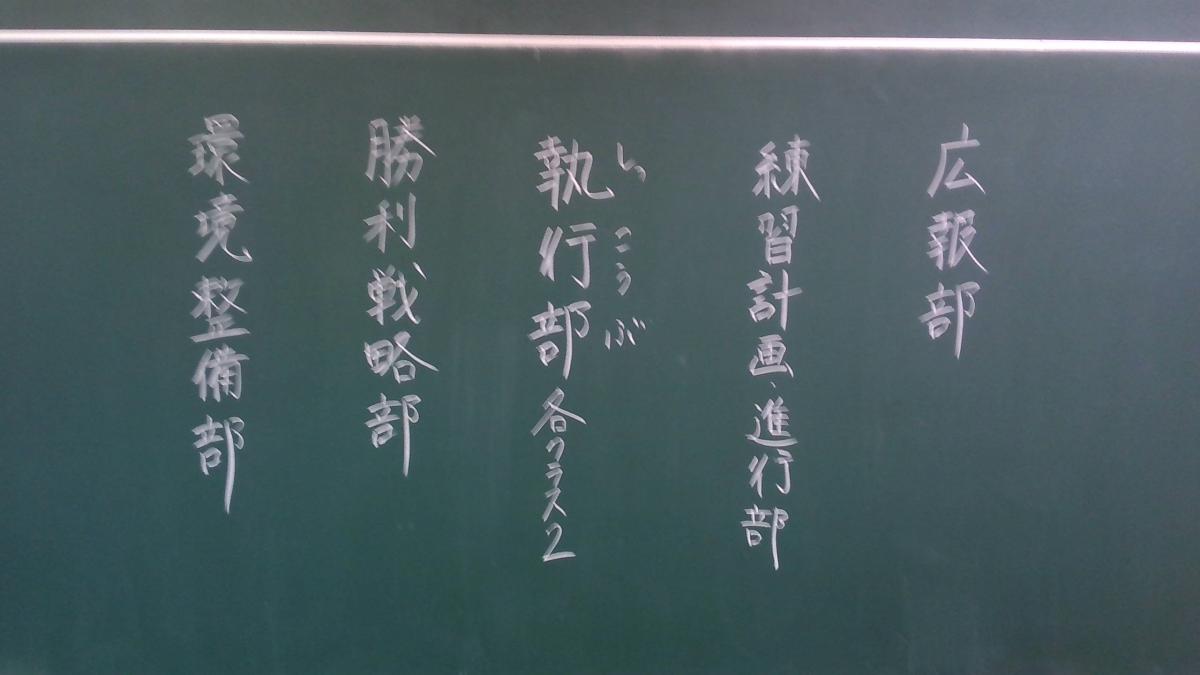 広報部
練習計画、進行部
しっこうぶ
執行部各クラス2
勝利、戦略部
環境整備部